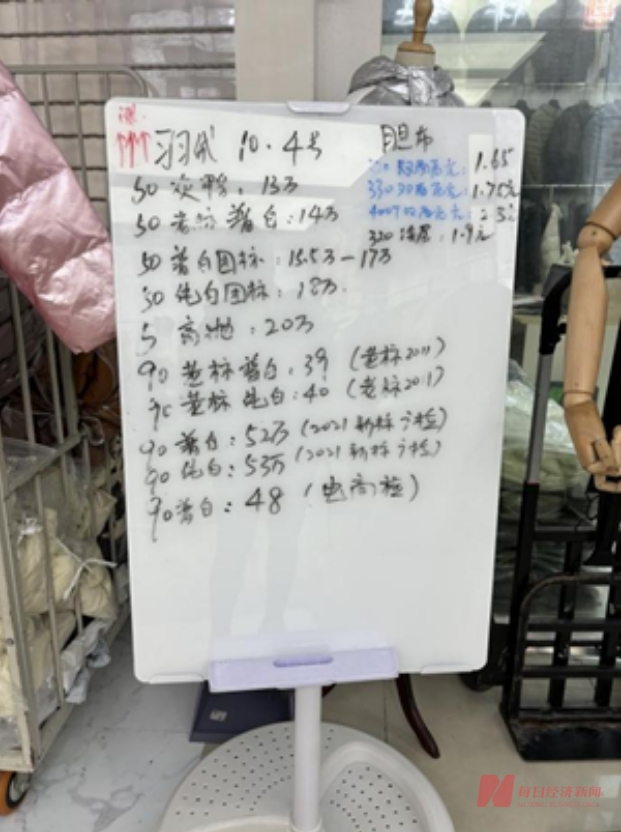 涨
↑↑↑ 羽绒 10.4号
50 灰鸭:13万
50 老标 普白:14万
50 普白国标:15.5万-17万
50 纯白国标:18万
5 高抛:20万
90 普白:39 (老标2011)
90 纯白:40 (老标2011)
90 普白:52万 (2021新标广检)
90 纯白:53万 (2021新标广检)
90 普白:48 (电商检)
胆布
1.65
1.75元
400T
320 涂层:1.9元
每日经济新闻